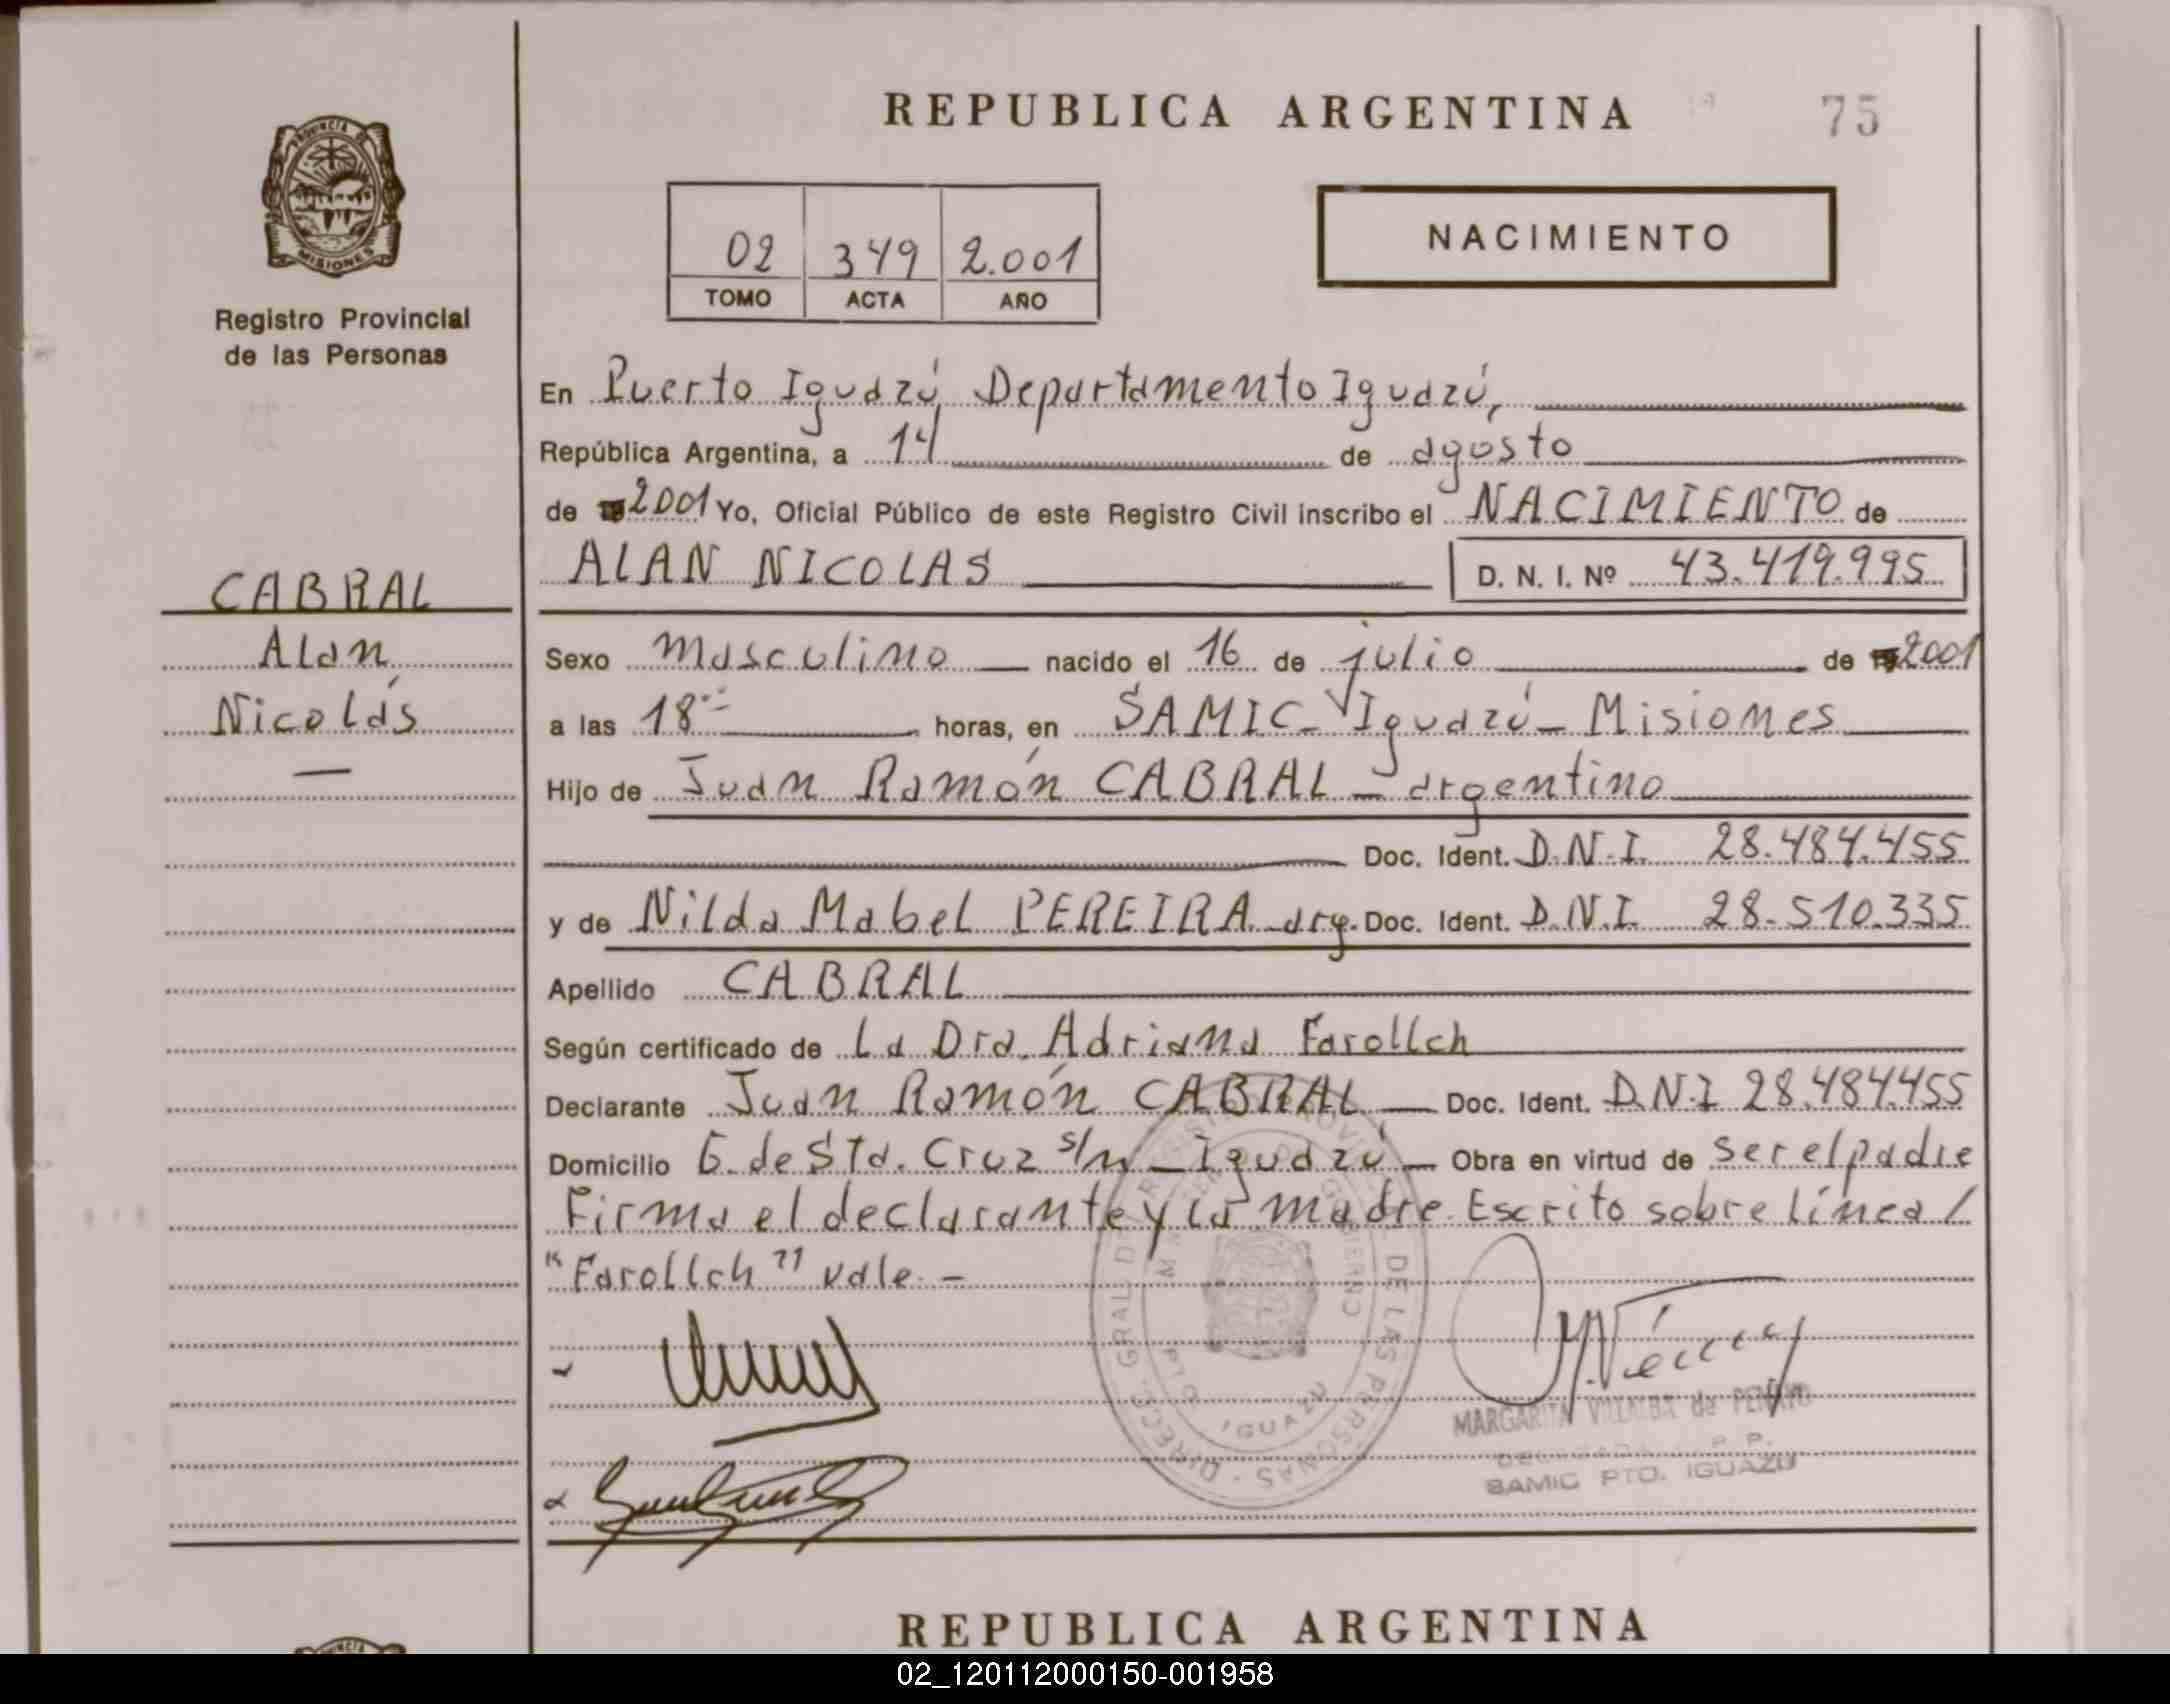 REPUBLICA ARGENTINA
75
PROVINCIA DE
MISIONES
Registro Provincial
de las Personas
02 349 2.001
TOMO ACTA AÑO
NACIMIENTO
En Puerto Iguazú, Departamento Iguazú,
República Argentina, a 14 de agosto
de 2001 Yo, Oficial Público de este Registro Civil inscribo el NACIMIENTO de
ALAN NICOLAS D. N. I. Nº 43.419.995
CABRAL
Alan
Nicolás
Sexo Masculino nacido el 16 de julio de 2001
a las 18 horas, en SAMIC - Iguazú - Misiones
Hijo de Juan Ramón CABRAL - argentino
Doc. Ident. D.N.I. 28.484.455
y de Nilda Mabel PEREIRA - arg. Doc. Ident. D.N.I. 28.510.335
Apellido CABRAL
Según certificado de La Dra. Adriana Farollch
Declarante Juan Ramón CABRAL - Doc. Ident. D.N.I 28.484.455
Domicilio G. de Sta. Cruz s/n - Iguazú - Obra en virtud de ser el padre
Firma el declarante y la madre. Escrito sobre línea/
"Farollch" vale. -
DIRECC. GRAL. DE REGISTRO PROVINCIAL DE LAS PERSONAS
GOBIERNO
IGUAZU
MARGARITA VILLALBA de PENAYO
SAMIC PTO. IGUAZU
REPUBLICA ARGENTINA
02_120112000150-001958